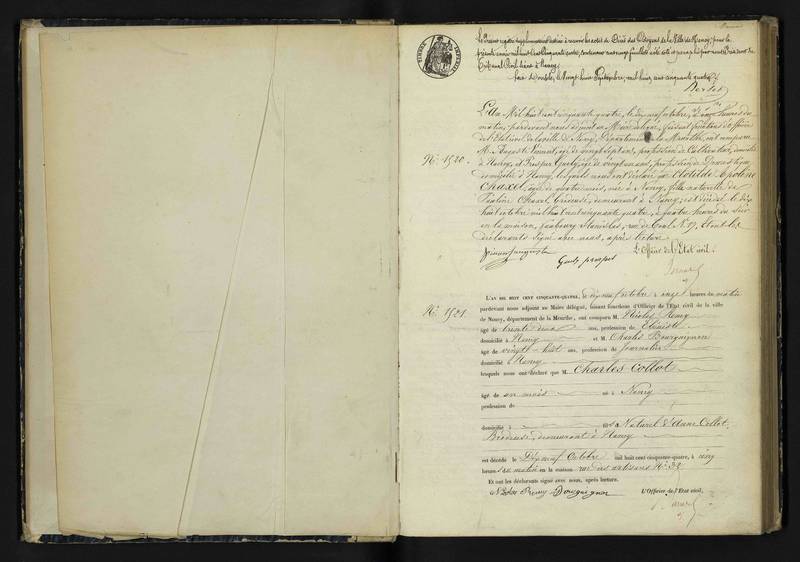 Le Présent registre supplémentaire destiné à recevoir les actes de Décès des Citoyens de la Ville de Nancy, pour la
présente année mil huit cent cinquante quatre, contenant
Tribunal Civil séant à Nancy.
Fait double, le Vingt huit Septembre, mil huit cent cinquante quatre
TIMBRE IMPÉRIAL
L'an Mil huit cent cinquante quatre, le dix neuf octobre, à onze heures du
matin, pardevant nous adjoint au Maire délégué, faisant fonctions d'officier
de l'Etat civil de la ville de Nancy, Département de la Meurthe, ont comparu
M. Auguste Simont, agé de vingt sept ans, profession de domicilié
No. 1520. à Nancy, et Prosper agé de vingt ans, profession de
domicilié à Nancy, lesquels nous ont déclaré que Clotilde Apoline
Chaxel, agée de quatre mois, née à Nancy, fille naturelle de
Pauline Chaxel, Brodeuse, demeurant à Nancy; est décédée le dix
huit octobre mil huit cent cinquante quatre, à quatre heures du soir
en la maison, faubourg Stanislas, rue de No. Et ont les
déclarants signé avec nous, après lecture.
L'Officier de l'Etat civil.
No. 1521.
L'AN MIL HUIT CENT CINQUANTE-QUATRE, le dix neuf octobre à onze heures du matin
pardevant nous adjoint au Maire délégué, faisant fonctions d'Officier de l'Etat civil de la ville
de Nancy, département de la Meurthe, ont comparu M. Nicolas Remy
âgé de trente deux ans, profession de Ebéniste
domicilié à Nancy et M. Charles Bourguignon
âgé de vingt-huit ans, profession de Journalier
domicilié à Nancy
lesquels nous ont déclaré que M. Charles Collot
âgé de un mois né à Nancy
profession de
domicilié à fils Naturel d'Anne Collot,
Brodeuse, demeurant à Nancy
est décédé le Dix neuf Octobre mil huit cent cinquante-quatre, à cinq
heures du matin en la maison rue des artisans No. 32
Et ont les déclarants signé avec nous, après lecture.
Nicolas Remy Bourguignon L'Officier de l'Etat civil,